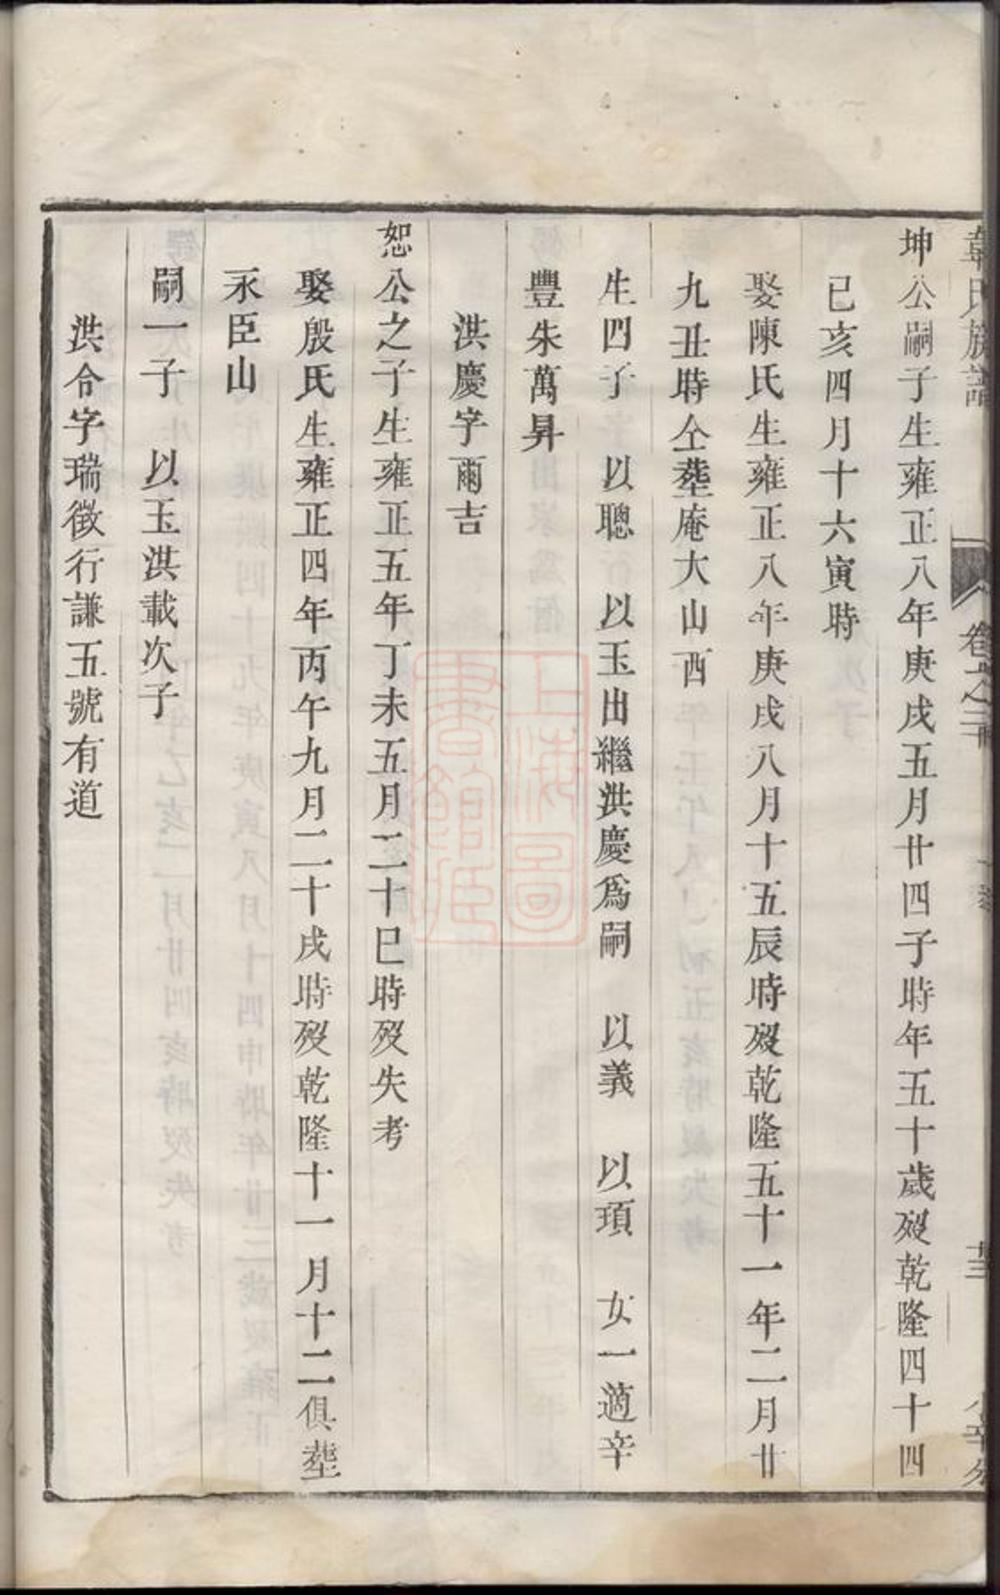 坤公嗣子生雍正八年庚戌五月廿四子時年五十歲殁乾隆四十四
己亥四月十六寅時
娶陳氏生雍正八年庚戌八月十五辰時殁乾隆五十一年二月廿
九丑時仝塟庵大山西
生四子　以聰　以玉出繼洪慶爲嗣　以義　以頊　女一適辛
豐朱萬昇
洪慶字爾吉
恕公之子生雍正五年丁未五月二十巳時殁失考
娶殷氏生雍正四年丙午九月二十戌時殁乾隆十一月十二俱塟
永臣山
嗣一子　以玉洪載次子
洪令字瑞徵行謙五號有道
上海圖書館藏